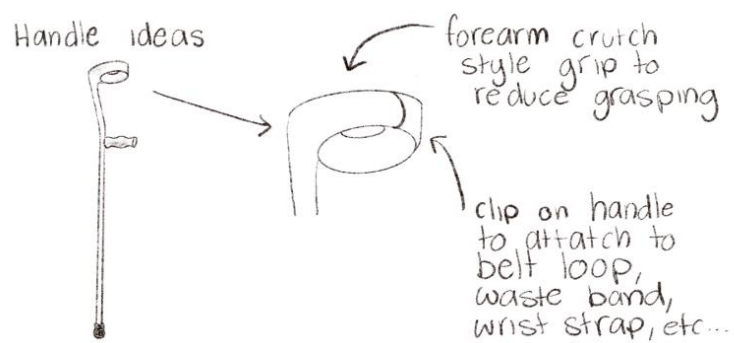 Handle ideas
forearm crutch
style grip to
reduce grasping
clip on handle
to attatch to
belt loop,
waste band,
wrist strap, etc...